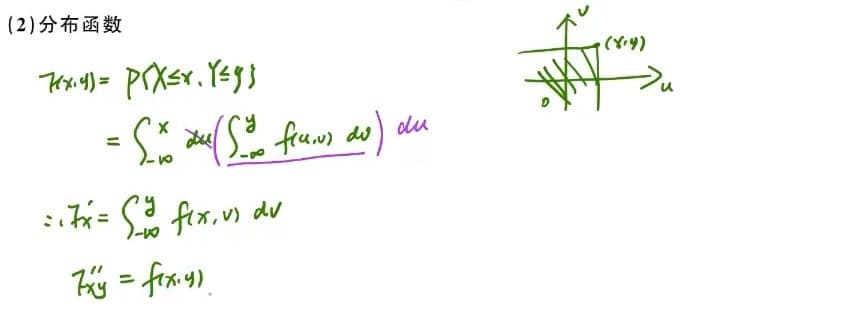 (2)分布函数
F(x,y) = P{X≤x, Y≤y}
= ∫_{-∞}^{x} du (∫_{-∞}^{y} f(u,v) dv) du
∴ F'x = ∫_{-∞}^{y} f(x,v) dv
F''xy = f(x,y).
v
(x,y)
u
0